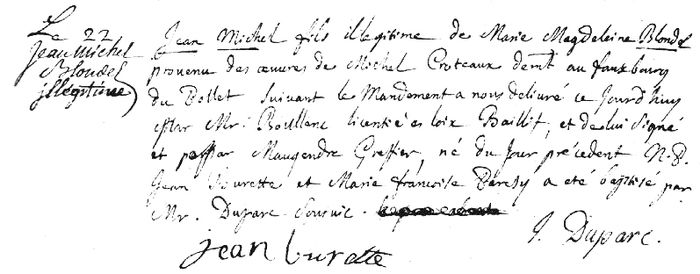 Le 22
Jean Michel
Blondel
illegitime
Jean Michel fils illegitime de Marie Magdeleine Blondel
provenu des œuvres de Michel Croteaux demt au fauxbourg
du Pollet suivant le Mandement a nous delivré ce Jourd'huy
par Mr. Boullenc licentié es loix Baillif, et de lui signé
et par Maugendre Greffier, né du Jour précédent N.P.
Jean Burette et Marie francoise a eté baptisé par
Mr. Duparc Sousvic.
J. Duparc.
jean burette